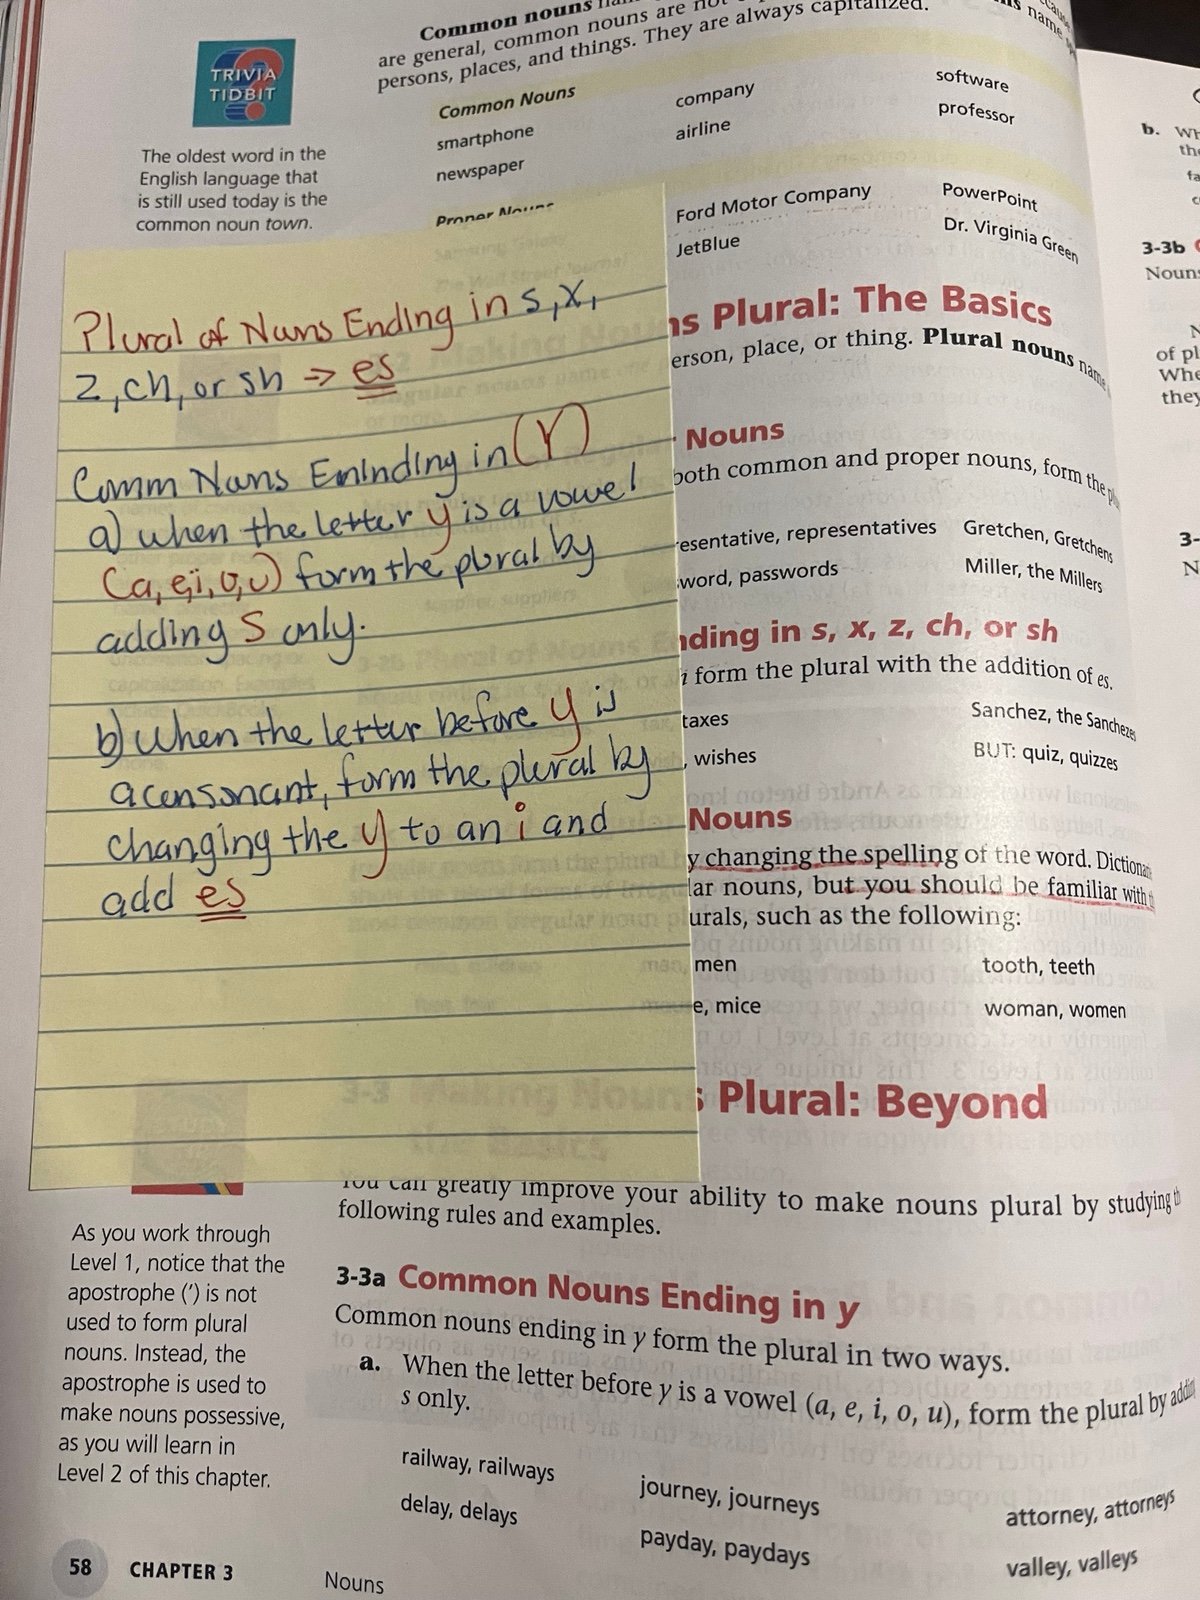 Common nouns
are general, common nouns are not
persons, places, and things. They are always capitalized.
name
TRIVIA
TIDBIT
The oldest word in the
English language that
is still used today is the
common noun town.
Common Nouns
smartphone
newspaper
company
airline
software
professor
Proper Nouns
Ford Motor Company
JetBlue
PowerPoint
Dr. Virginia Green
Plural of Nuns Ending in s, x,
z, ch, or sh → es
Comm Nuns Eninding in (Y)
a) when the letter y is a vowel
(a, e, i, o, u) form the plural by
adding S only.
b) When the letter before y is
a consonant, form the plural by
changing the y to an i and
add es
ns Plural: The Basics
erson, place, or thing. Plural nouns name
Nouns
both common and proper nouns, form the
esentative, representatives
word, passwords
Gretchen, Gretchens
Miller, the Millers
nding in s, x, z, ch, or sh
form the plural with the addition of es.
taxes
, wishes
Sanchez, the Sanchezes
BUT: quiz, quizzes
Nouns
y changing the spelling of the word.
lar nouns, but you should be familiar with
urals, such as the following:
man, men
e, mice
tooth, teeth
woman, women
3-3 Making Nouns Plural: Beyond
the Basics
You can greatly improve your ability to make nouns plural by studying
following rules and examples.
3-3a Common Nouns Ending in y
Common nouns ending in y form the plural in two ways.
a. When the letter before y is a vowel (a, e, i, o, u), form the plural by adding
s only.
railway, railways
delay, delays
journey, journeys
payday, paydays
attorney, attorneys
valley, valleys
As you work through
Level 1, notice that the
apostrophe (') is not
used to form plural
nouns. Instead, the
apostrophe is used to
make nouns possessive,
as you will learn in
Level 2 of this chapter.
58 CHAPTER 3
Nouns
b. Wh
the
fa
3-3b
Nouns
of pl
Whe
they
3-
N